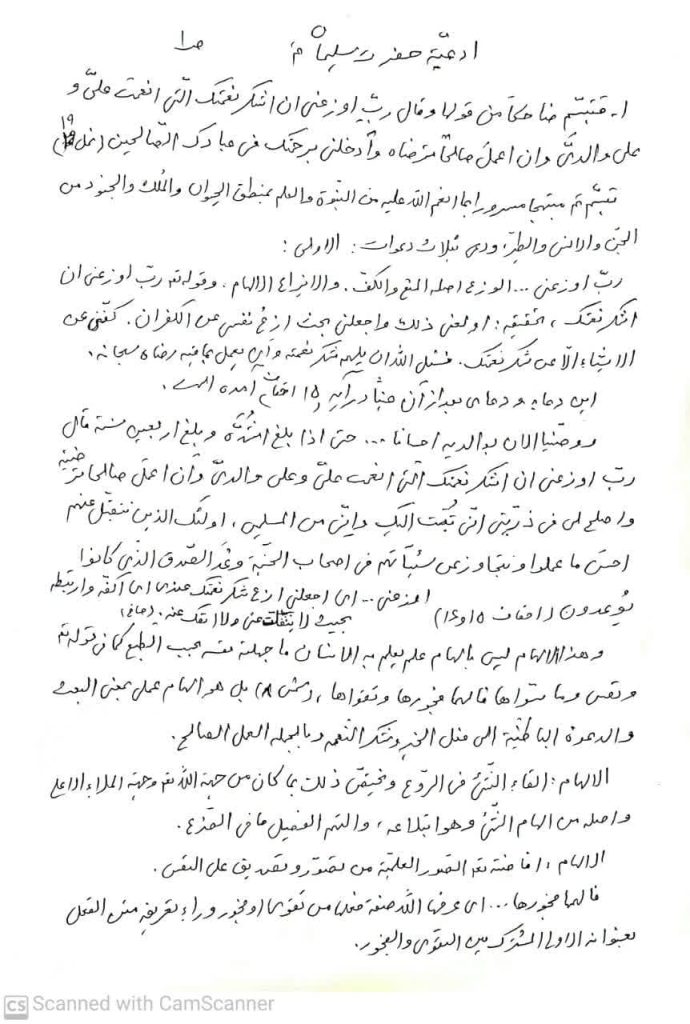 ادعیّة حضرت سلیمان ص ۱
۱ـ فتبسّم ضاحکاً من قولها وقال ربّ اوزعنی ان اشکر نعمتک الّتی انعمت علیّ و
علی والدیّ وان اعمل صالحاً ترضاه وأدخلنی برحمتک فی عبادک الصّالحین (نمل ۱۹)
تبسّم مبتهجاً مسروراً بما انعم الله علیه من النبوّة والعلم بمنطق الحیوان والملک والجنود من
الجنّ والانس والطیر، ودعی ثلاث دعوات: الاولی:
ربّ اوزعنی ... الوزع اصله المنع والکف. والایزاع الالهام. وقوله تع ربّ اوزعنی ان
اشکر نعمتک، تحقیقه: اولعنی ذلک واجعلنی بحیث ازع نفسی عن الکفران. کفّنی عن
الاشیاء الّا عن شکر نعمتک. فسئل الله ان یلهمه شکر نعمته وأن یعمل بما فیه رضاه سبحانه.
این دعاء و دعای بعد از آن در آیه ۱۵ احقاف آمده است.
ووصّینا الانسان بوالدیه احسانا ... حتی اذا بلغ اشدّه وبلغ اربعین سنة قال
ربّ اوزعنی ان اشکر نعمتک الّتی انعمت علیّ وعلی والدیّ وان اعمل صالحا ترضیه
واصلح لی فی ذرّیتی انّی تُبت الیک وانّی من المسلمین، اولئک الذین نتقبّل عنهم
احسن ما عملوا ونتجاوز عن سیّئاتهم فی اصحاب الجنّة وعد الصّدق الّذی کانوا
یُوعدون (احقاف ۱۵و۱۶) اوزعنی ... ای اجعلنی ازع شکر نعمتک عندی ای اکفّه وارتبطه
بحیث لا ینفلت عنی ولا انفک عنه. (صافی)
وهذا الالهام لیس بالهام علم یعلم به الانسان ما جهلته نفسه بحسب الطبع کما فی قوله تع
ونفس وما سوّاها فالهمها فجورها وتقواها، (شمس ۸) بل هو الهام عمل بمعنی البعث
والدعوة الباطنیّة الی فعل الخیر وشکر النّعمه وبالجمله العمل الصالح.
الالهام: القاء الشّیئ فی الرّوع ویختصّ ذلک بما کان من جهة الله تع وجهة الملاء الاعلی
واصله من الهام الشّیئ وهو ابتلاعه، والتهم الفصیل ما فی الضّرع.
الالهام: افاضته تع الصّور العلمیّة من تصوّر وتصدیق علی النفس.
فالهمها فجورها ... ای عرفها الله صفة فعلها من تقوی او فجور وراء تعریفه متن الفعل
بعنوانه الاولی المشترک بین التقوی والفجور.
CS Scanned with CamScanner